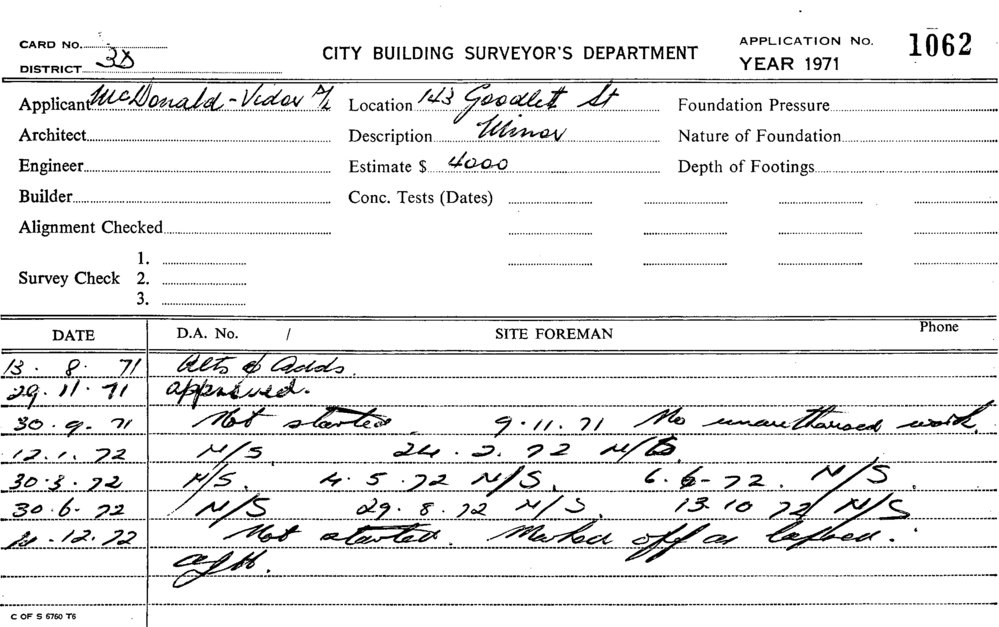 CARD No.
DISTRICT 3D
CITY BUILDING SURVEYOR'S DEPARTMENT
APPLICATION No. 1062
YEAR 1971
Applicant McDonald-Vidor P/L Location 143 Goodlet St Foundation Pressure
Architect Description Minor Nature of Foundation
Engineer Estimate $ 4000 Depth of Footings
Builder Conc. Tests (Dates)
Alignment Checked
1.
Survey Check 2.
3.
DATE D.A. No. / SITE FOREMAN Phone
13. 8. 71 Alts & Adds.
29. 11. 71 approved.
30. 9. 71 Not started. 9. 11. 71 No unauthorised work.
12. 1. 72 N/S 24. 2. 72 N/S
30. 3. 72 N/S. 4. 5. 72 N/S. 6. 6- 72. N/S.
30. 6. 72 N/S 29. 8. 72 N/S. 13. 10 72 N/S
12. 72 Not started. Marked off as lapsed.
C OF S 6760 T6